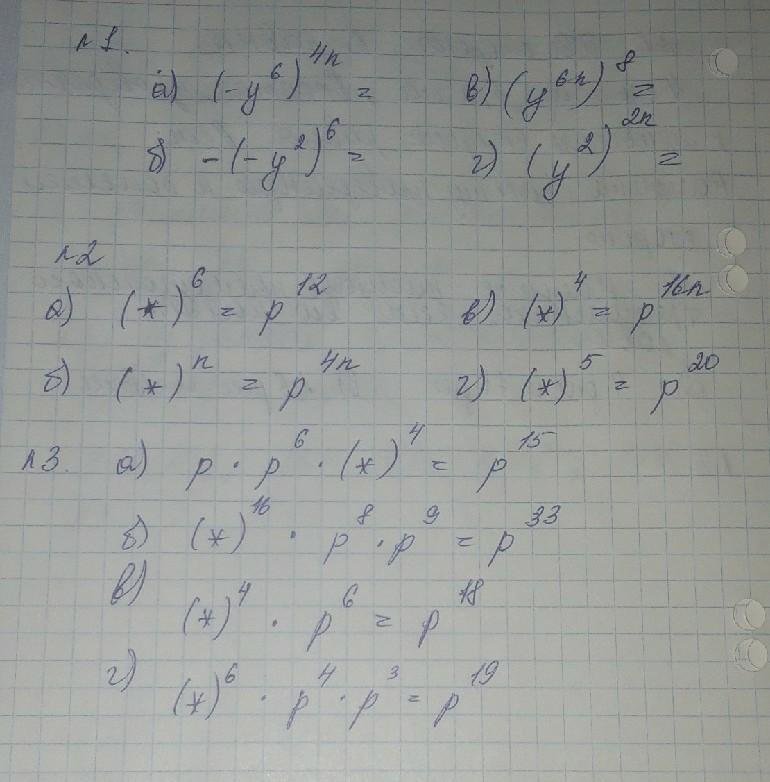 №1.
а) (-y⁶)⁴ⁿ = в) (y⁶ⁿ)⁸ =
б) -(-y²)⁶ = г) (y²)²ⁿ =
№2
а) (*)⁶ = p¹² в) (*)⁴ = p¹⁶ⁿ
б) (*)ⁿ = p⁴ⁿ г) (*)⁵ = p²⁰
№3. а) p · p⁶ · (*)⁴ = p¹⁵
б) (*)¹⁶ · p⁸ · p⁹ = p³³
в) (*)⁴ · p⁶ = p¹⁸
г) (*)⁶ · p⁴ · p³ = p¹⁹